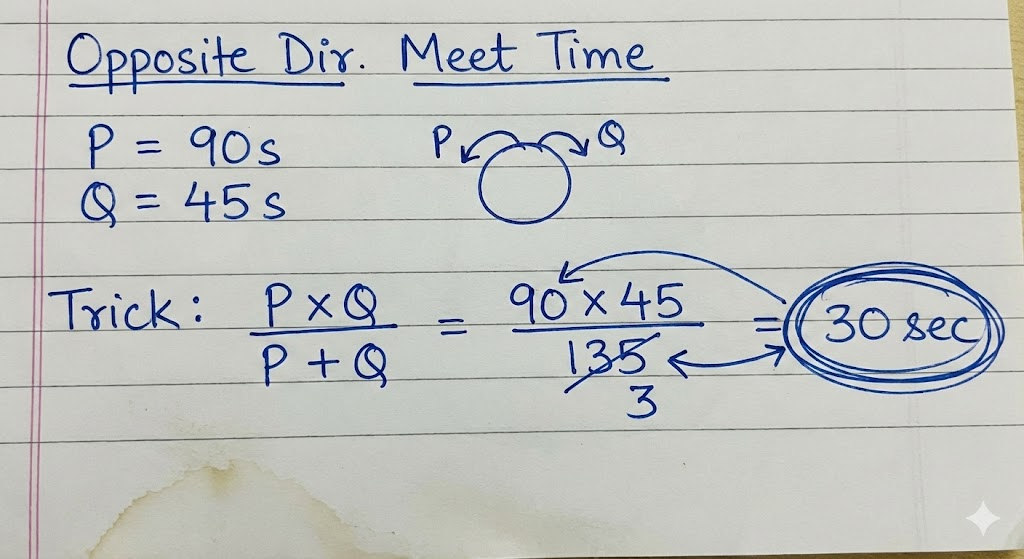 Opposite Dir. Meet Time
P = 90s
Q = 45s
P Q
Trick: P x Q / P + Q = 90 x 45 / 135 = 30 sec
3